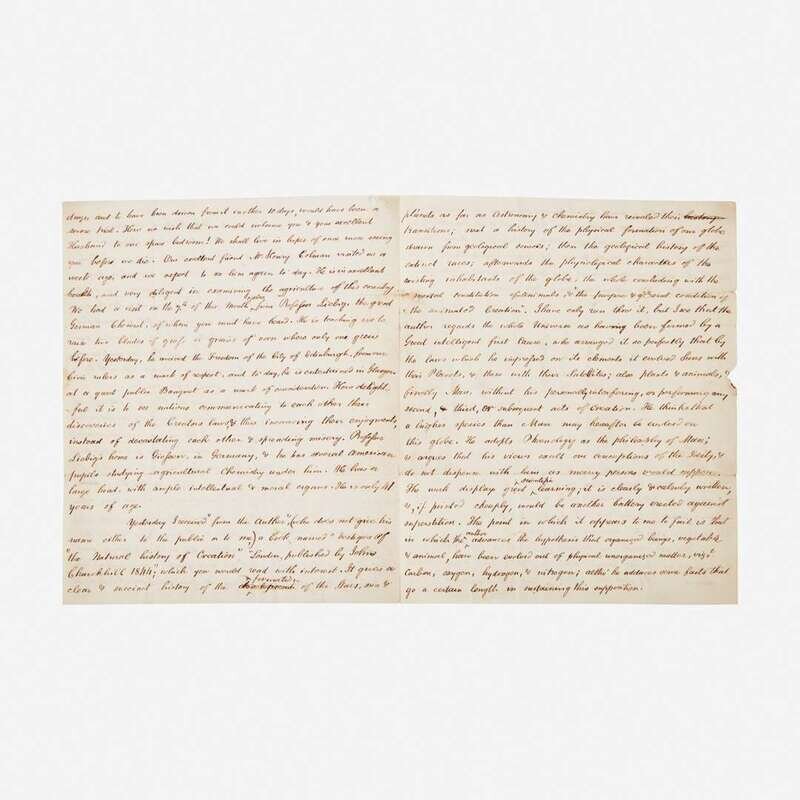 days, and to have been drawn found another 10 days, would have been a
severe trial. How we wish that we could welcome you & your excellent
Husband to our spare bedroom! We shall live in hopes of once more seeing
you before we die. Our excellent friend Mr Henry Colman visited us a
week ago, and we expect to see him again to day. He is in excellent
health, and very diligent in examining the agriculture of this country.
We had a visit on the 7th of this Month, from Professor Liebig, the great
German Chemist, of whom you must have heard. He is teaching us to
raise two blades of grass or grains of corn where only one grew
before. Yesterday, he received the Freedom of the City of Edinburgh, from our
Civic rulers as a mark of respect, and to day, he is entertained in Glasgow
at a great public Banquet as a mark of consideration. How delight-
-ful it is to see nations communicating to each other their
discoveries of the Creators laws & thus increasing their enjoyments,
instead of devastating each other & spreading misery. Professor
Liebig's home is Giessen, in Germany, & he has several American
pupils studying agricultural Chemistry under him. He has a
large head with ample intellectual & moral organs. He is only 41
years of age.
Yesterday I received "from the Author" (who does not give his
name either to the public or to me,) a book named "Vestiges of
"the Natural history of Creation" "London, published by John
Churchill 1844", which you would read with interest. It gives a
clear & succinct history of the formation of the Stars, sun &
planets as far as Astronomy & chemistry have revealed their
transitions; next a history of the physical formation of our globe
drawn from geological sources; then the geological history of the
extinct races; afterwards the physiological characters of the
existing inhabitants of the globe, the whole concluding with the
"mental constitution of animals" & "the purpose & general condition of
the animated Creation". I have only run thro' it, but I see that the
author regards the whole Universe as having been formed by a
Great intelligent first Cause, who arranged it so perfectly that by
the laws which he impressed on its elements it evolved Suns with
their Planets, & these with their Satellites; also plants & animals, &
finally Man, without his personally interfering, or performing any
second, & third, or subsequent acts of Creation. He thinks that
a higher species than Man may hereafter be evolved on
this globe. He adopts Phrenology as the philosophy of Man;
& argues that his views exalt our conceptions of the Deity, &
do not dispense with him as many persons would suppose.
The work displays great scientific learning, it is clearly & calmly written,
&, if printed cheaply, would be another battery erected against
superstition. The point in which it appears to me to fail is that
in which the author advances the hypothesis that organized beings, vegetable
& animal, have been evolved out of physical unorganized matter, viz:
Carbon, oxygen, hydrogen, & nitrogen; altho' he adduces some facts that
go a certain length in sustaining this supposition.